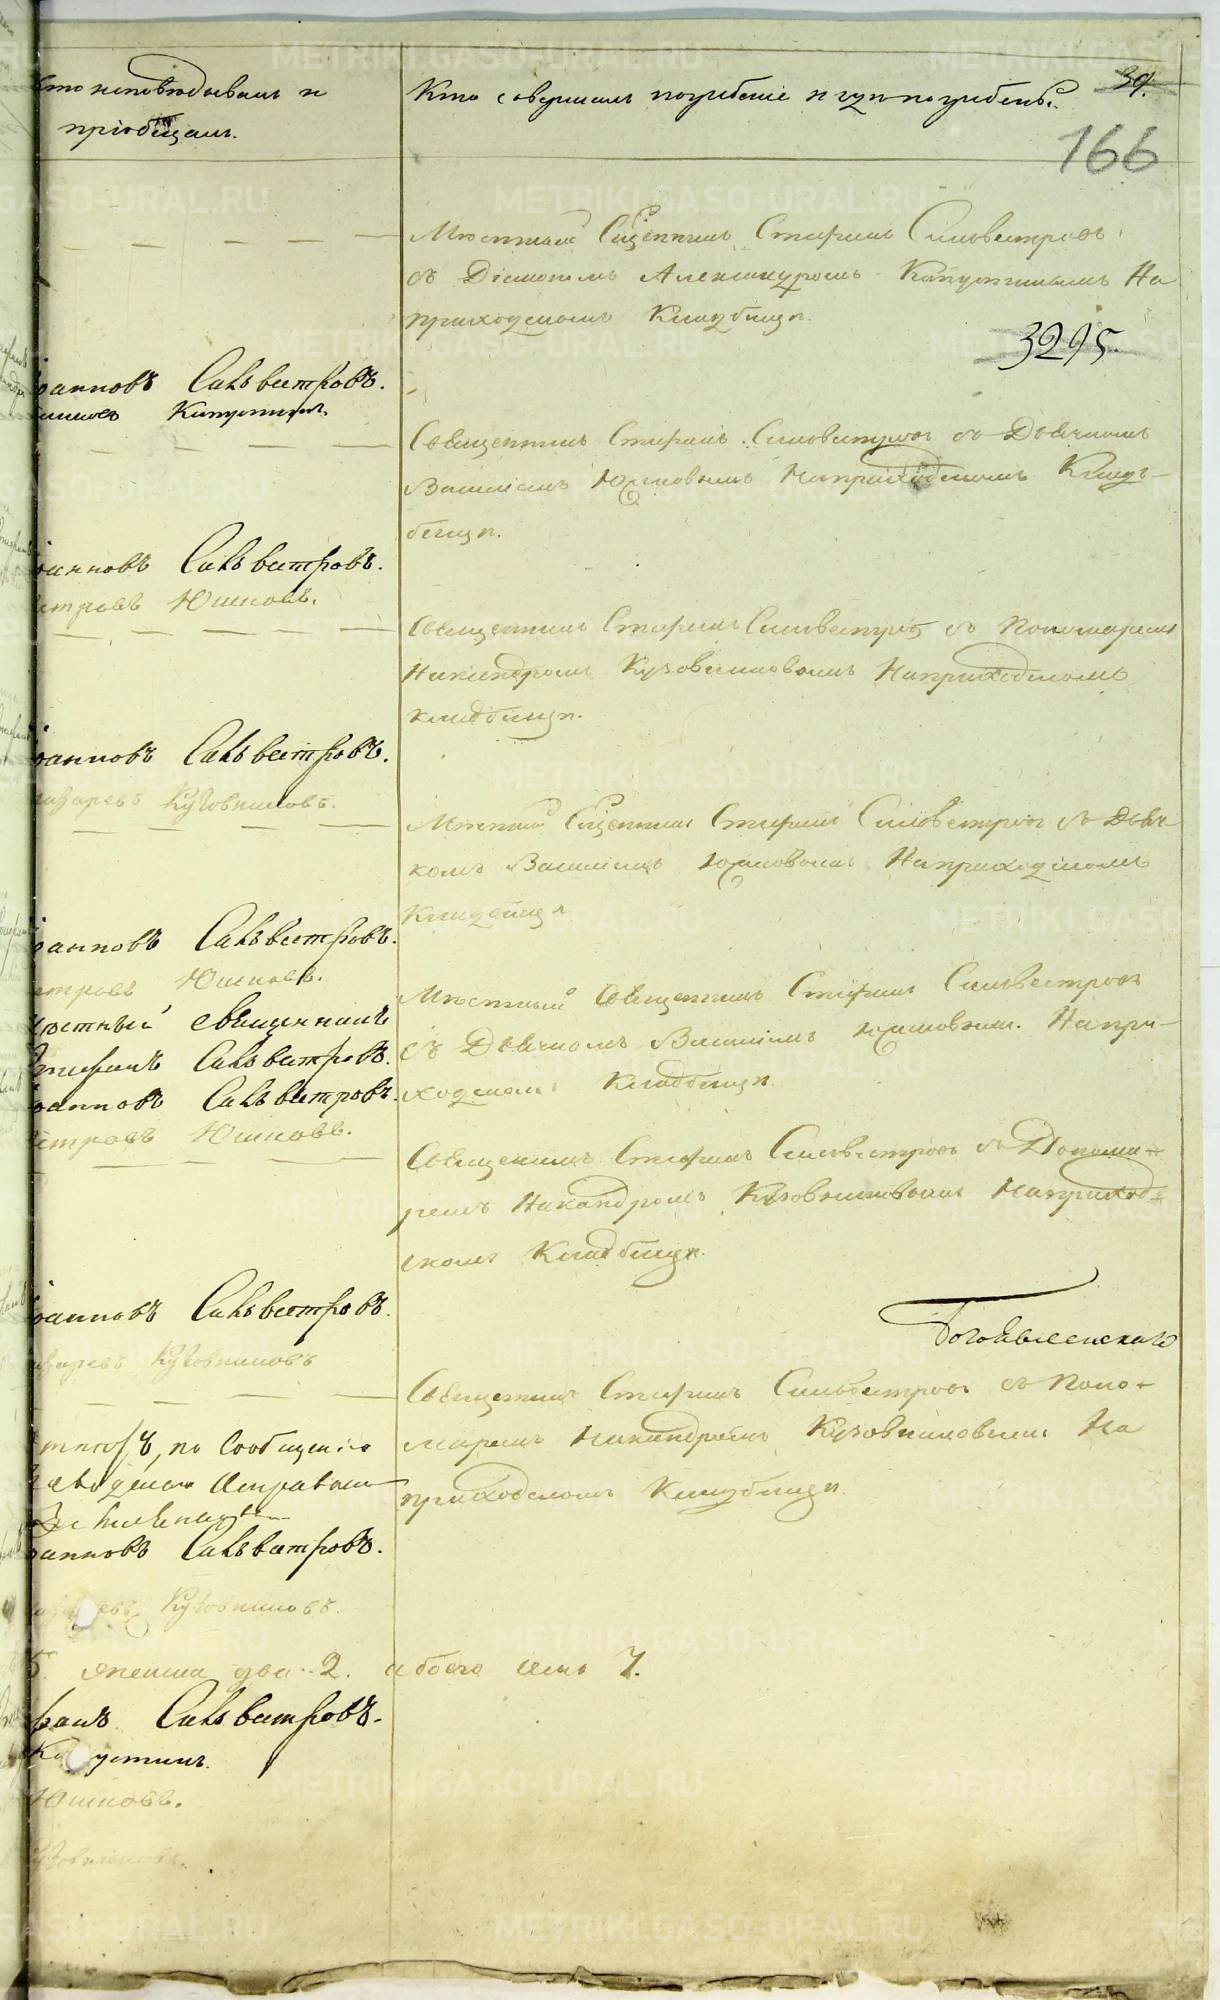 Кто исповѣдывалъ и
пріобщалъ.
Кто совершалъ погребеніе и гдѣ погребены.
39.
166
Мѣстный Священникъ Стефанъ Сильвестровъ
съ Діакономъ Александромъ Капустинымъ На
приходскомъ Кладбищѣ.
3295.
оанновъ Сильвестровъ.
Капустинъ.
Священникъ Стефанъ Сильвестровъ съ Дьячкомъ
Василіемъ Юшковымъ На приходскомъ Клад-
бищѣ.
оанновъ Сильвестровъ.
етровъ Юшковъ.
Священникъ Стефанъ Сильвестровъ съ Пономаремъ
Никандромъ Кузовниковымъ На приходскомъ
кладбищѣ.
оанновъ Сильвестровъ.
азаревъ Кузовниковъ.
Мѣстный Священникъ Стефанъ Сильвестровъ съ Дьяч-
комъ Василіемъ Юшковымъ На приходскомъ
Кладбищѣ
оанновъ Сильвестровъ.
етровъ Юшковъ.
Мѣстный Священникъ Стефанъ Сильвестровъ
съ Дьячкомъ Василіемъ Юшковымъ. На при-
ходскомъ Кладбищѣ
ѣстный священникъ
Стефанъ Сильвестровъ.
оанновъ Сильвестровъ.
етровъ Юшковъ.
Священникъ Стефанъ Сильвестровъ съ Понома-
ремъ Никандромъ Кузовниковымъ На приход-
скомъ Кладбищѣ.
оанновъ Сильвестровъ.
азаревъ Кузовниковъ
Богоявленскаго
Священникъ Стефанъ Сильвестровъ съ Поно-
маремъ Никандромъ Кузовниковымъ На
приходскомъ Кладбищѣ.
по сообщенію
оанновъ Сильвестровъ.
Кузовниковъ.
5. женска два 2. обоего семь 7.
фанъ Сильвестровъ.
Капустинъ.
Юшковъ.
Кузовниковъ.
METRIKI.GASO-URAL.RU